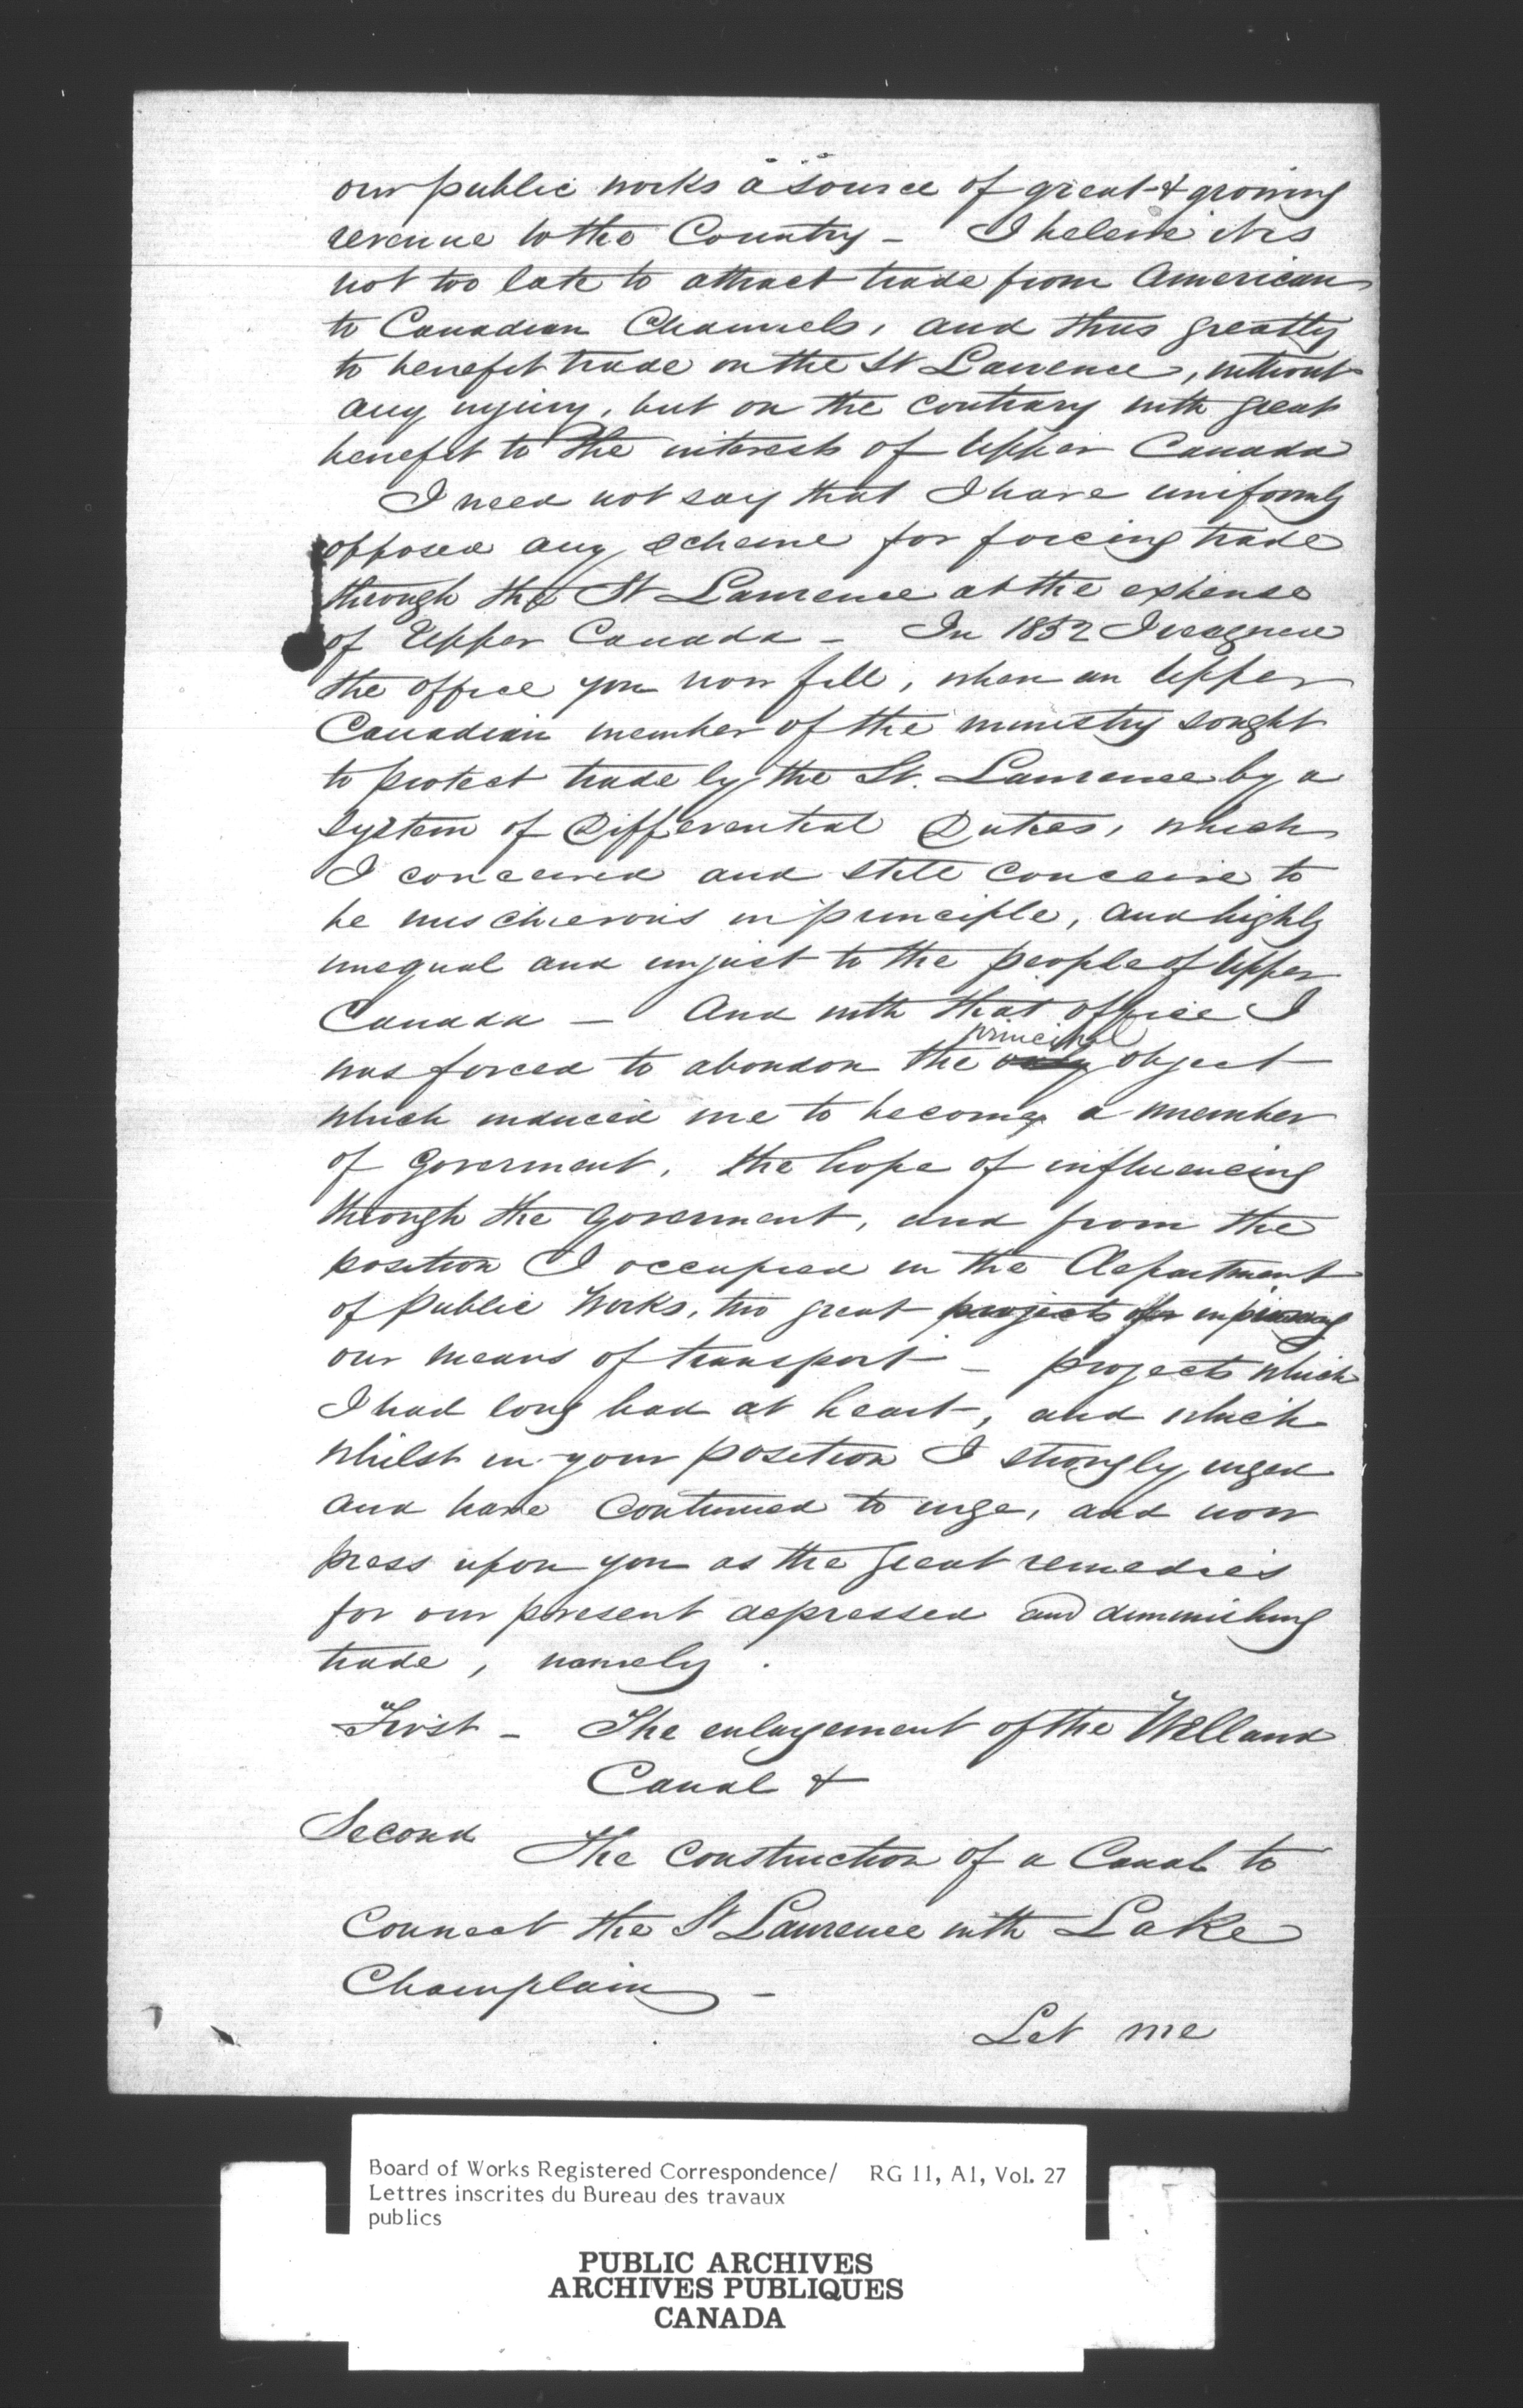 our public works a source of great & growing
revenue to the Country – I believe it is
not too late to attract trade from American
to Canadian Channels, and thus greatly
to benefit trade on the St Lawrence, without
any injury, but on the contrary with great
benefit to the interests of Upper Canada
I need not say that I have uniformly
opposed any scheme for forcing trade
through the St Lawrence at the expense
of Upper Canada – In 1852 I resigned
the office you now fill, when an Upper
Canadian member of the ministry sought
to protect trade by the St. Lawrence by a
System of Differential Duties, which
I conceived and still conceive to
be mischievous in principle, and highly
unequal and unjust to the people of Upper
Canada – And with that office I
principal
was forced to abandon the only object
which induced me to become a member
of Goverment, the hope of influencing
through the Goverment, and from the
position I occupied in the Department
of Public Works, two great projects for improving
our means of transport – projects which
I had long had at heart, and which
whilst in your position I strongly urged
and have continued to urge, and now
press upon you as the great remedies
for our present depressed and diminishing
trade, namely.
First – The enlargement of the Welland
Canal &
Second
The Construction of a Canal to
Connect the St Lawrence with Lake
Champlain –
Let me
Board of Works Registered Correspondence/ RG 11, A1, Vol. 27
Lettres inscrites du Bureau des travaux
publics
PUBLIC ARCHIVES
ARCHIVES PUBLIQUES
CANADA